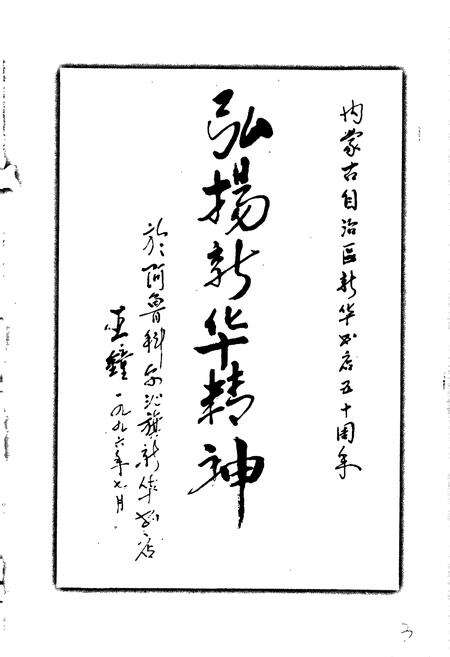 内蒙古自治区新华书店五十周年
弘揚新华精神
於阿鲁科尔沁旗新华书店
王鐘 一九九六年七月